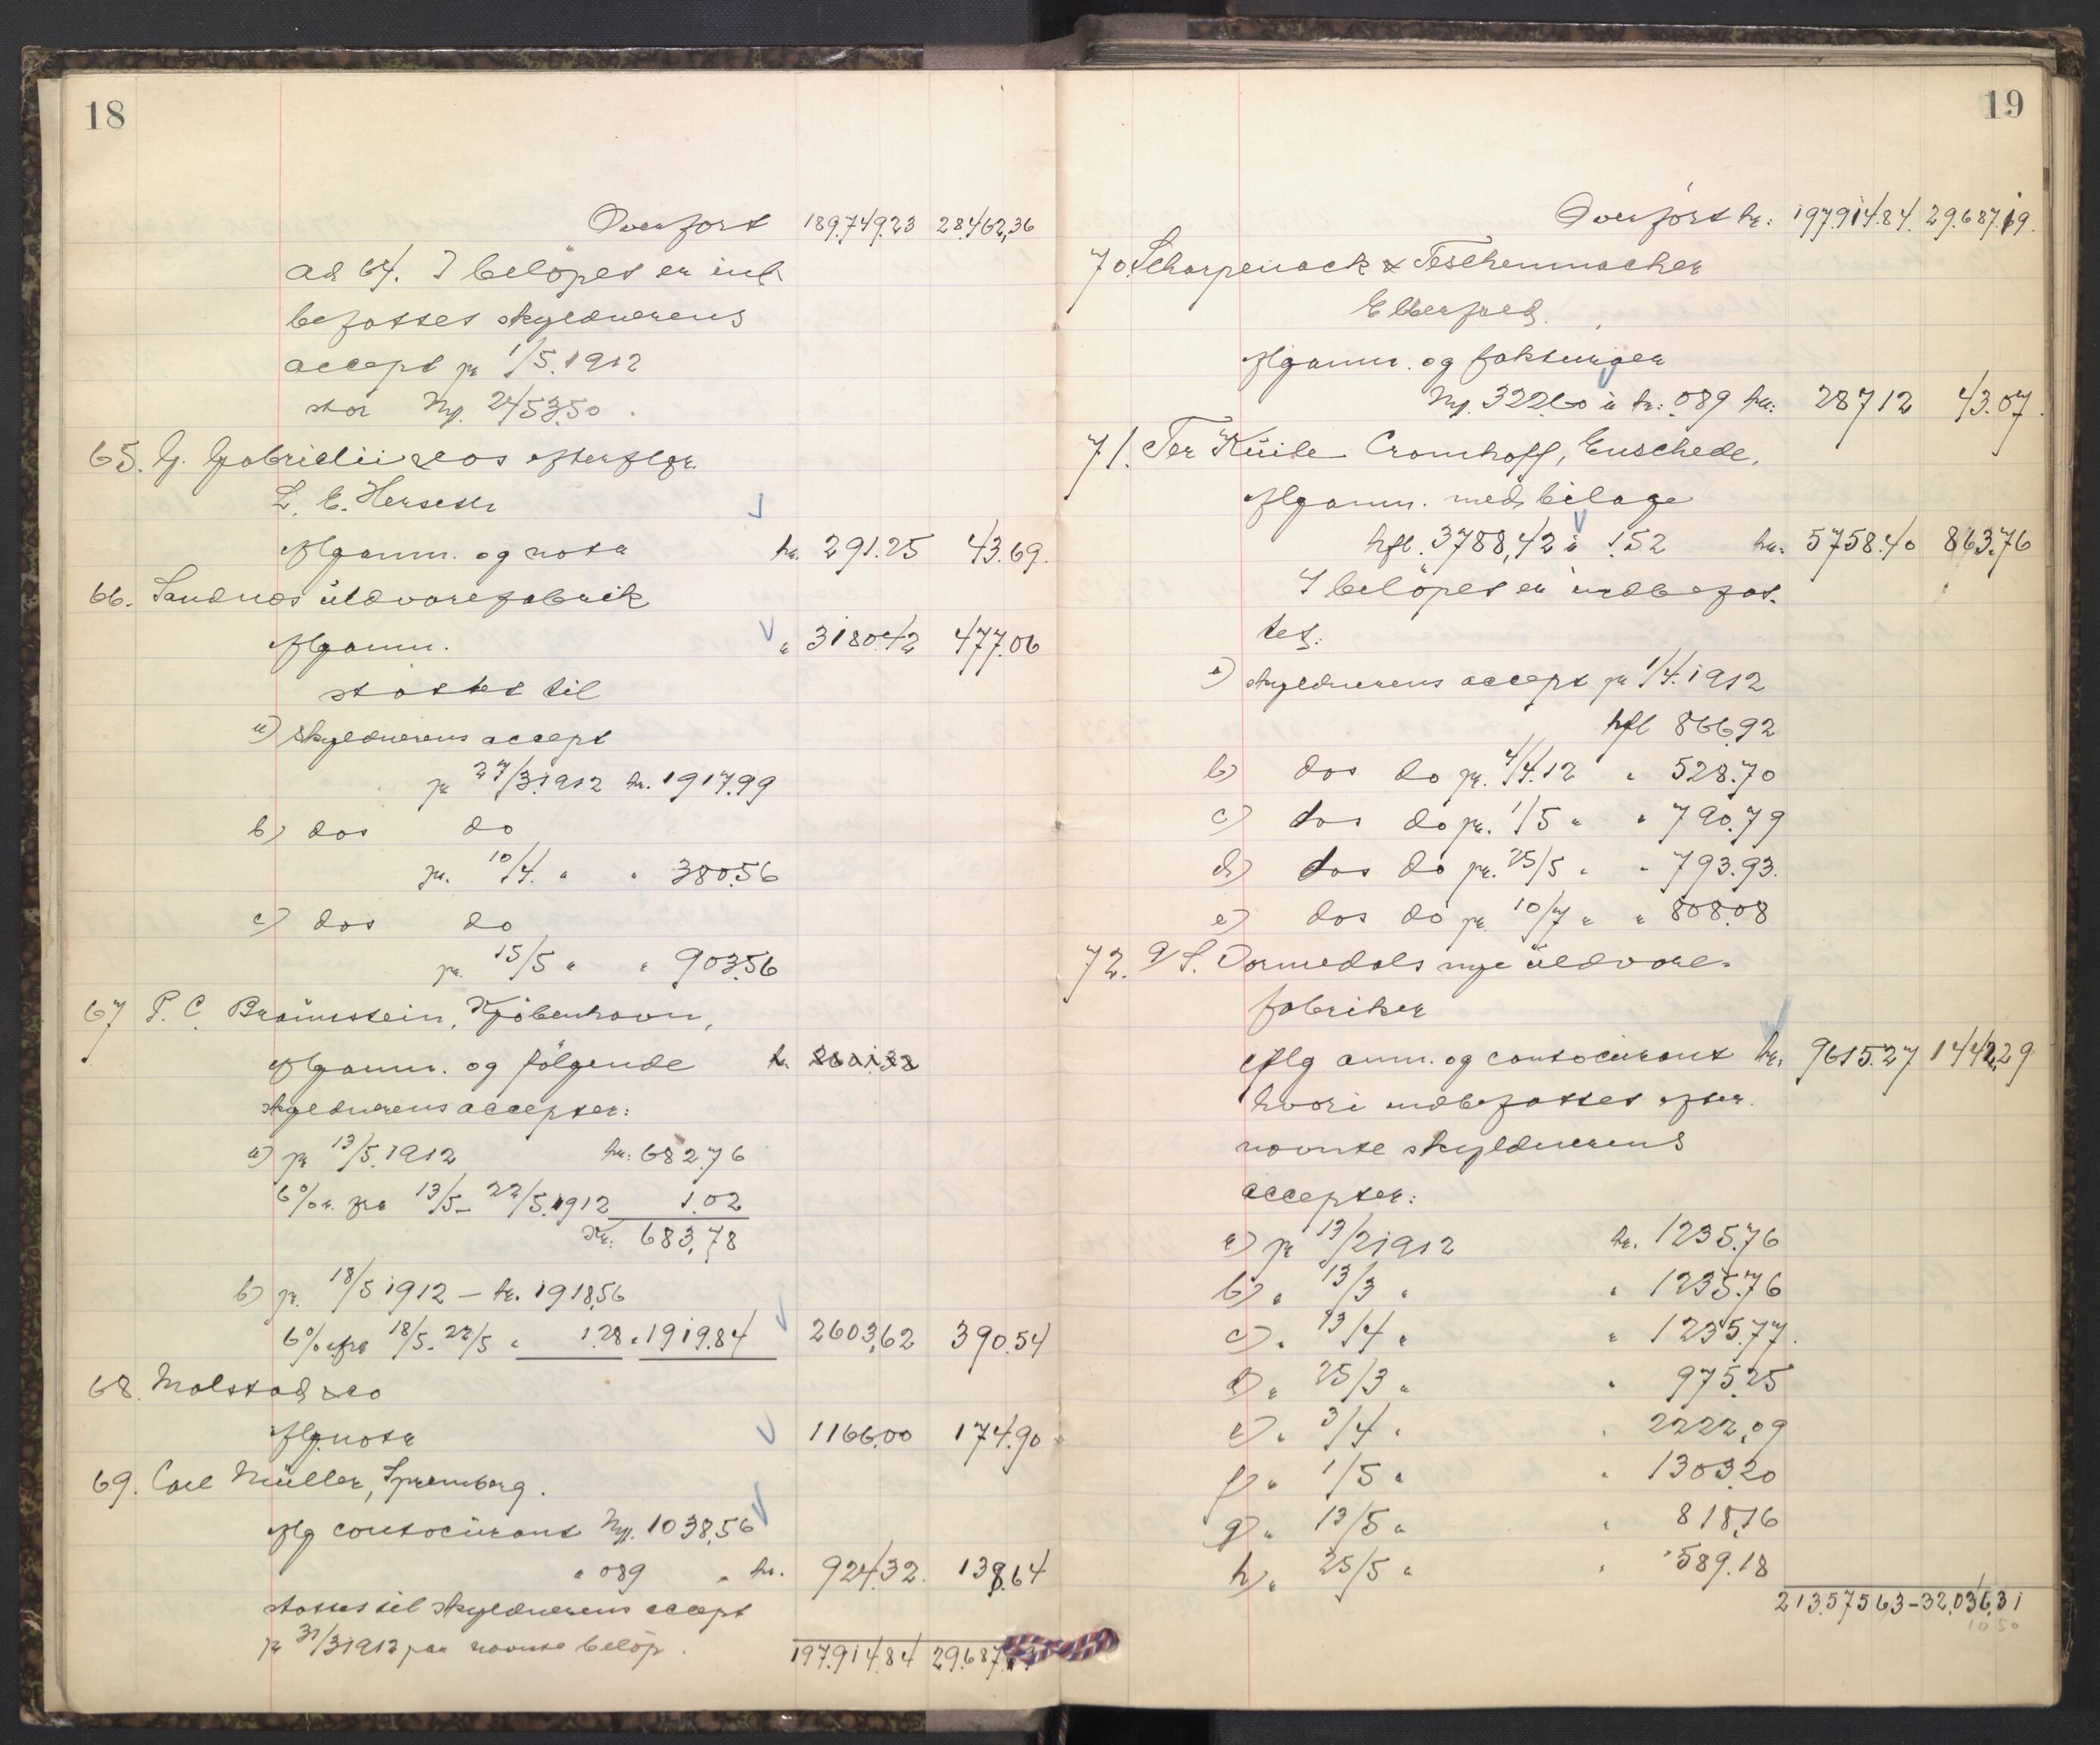 18
Overført 189.749.23 28.462,36
ad 64. I beløpet er ind-
befattet skyldnerens
accept pr 1/5.1912
stor Mk. 2453.50.
65. G. Gabrielii & Cos efterflgr.
L. E. Herseth
iflg anm. og nota kr. 291.25 43.69.
66. Sandnæs uldvarefabrik
iflg anm. " 3180.42 477.06
støttet til
a) skyldnerens accept
pr 27/3.1912 kr. 1917.99
b) dos do
pr. 10/4. " " 380.56
c) dos do
pr. 15/5 " " 903.56
67 P. C. Kjøbenhavn,
iflg anm. og følgende k.
skyldnerens accepter:
a) pr 13/5.1912 kr: 682.76
6% r. fra 13/5 - 22/5.1912 1.02
Kr: 683,78
b) pr. 18/5 1912 — kr. 1918,56
6% r. fra 18/5 - 22/5 " 1.28 " 1919.84 2603,62 390.54
68. Malstad & Co
iflg nota 1166.00 174.90
69. Carl Müller, Spremberg.
iflg contocurant Mk. 1038,56
" 089 " kr. 924.32. 138.64
støttet til skyldnerens accept
pr 31/3 1912 paa nævnte beløp.
197.914.84 29.687.19
19
Overført kr: 197.914.84. 29.687.19.
70. Scharpenack & Teschenmacher
Elberfeld.
iflg anm. og fakturaer
Mk. 322.60 à kr: 089 kr: 287 12 43.07.
71. Ter Kuile Cromhoff, Enschede,
iflg anm. med bilage
hfl. 3788,42 à 1.52 kr: 5758.40 863.76
I beløpet er indbefat-
tet:
a) skyldnerens accept pr 1/4.1912
hfl 866.92
b) dos do pr. 4/4.12 " 528.70
c) dos do pr. 1/5 " " 790.79
d) dos do pr. 25/5 " " 793.93.
e) dos do pr 10/7 " " 808.08
72. A/S. Dormedals nye uldvare-
fabriker
iflg anm. og contocurant kr. 9615.27 1442,29
hvori indbefattet efter-
nævnte skyldnerens
accepter:
a) pr 13/2 1912 kr. 1235.76
b) " 13/3 " " 1235.76
c) " 13/4 " " 1235.77.
d) " 25/3 " " 975.25
e) " 3/4 " " 2222,09
f) " 1/5 " " 1303.20
g) " 13/5 " " 818,16
h) " 25/5 " " 589.18
213.575 63 - 32.036,31
10 50